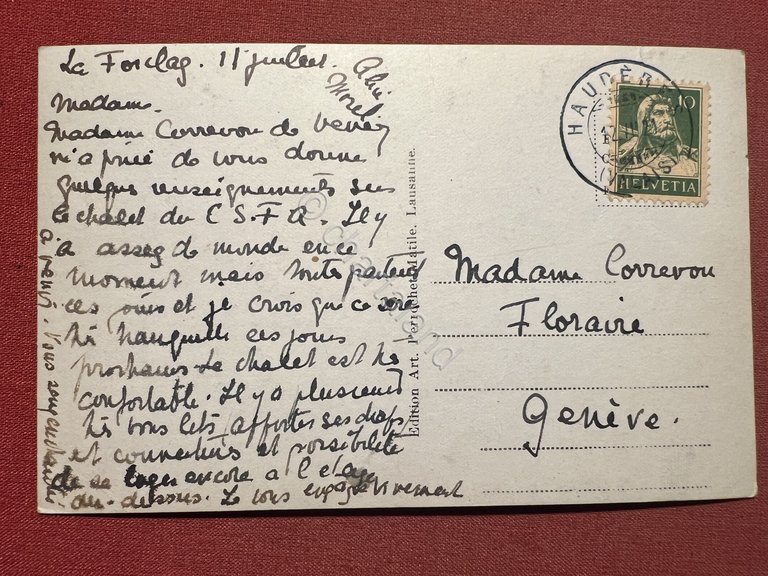 La Forclag. 11 juillet.
Madame.
Madame Correvon de
m'a priée de vous donne
quelques renseignements sur
le chalet du C S F A. Il y
a assez de monde en ce
moment mais toute partent
ces jours et je crois que ce sera
très tranquille ces jours
prochains. Le chalet est très
confortable. Il y a plusieurs
très bons lits, apporter ses draps
et couvertures et possibilité
de se loger encore à l'étage
au-dessus. Je vous engage vivement
à venir. Vous
Morel
Edition Art. Perrochet-Matile. Lausanne.
© cartaland
HAUDÈRES
10
HELVETIA
Madame Correvon
Floraire
Genève.